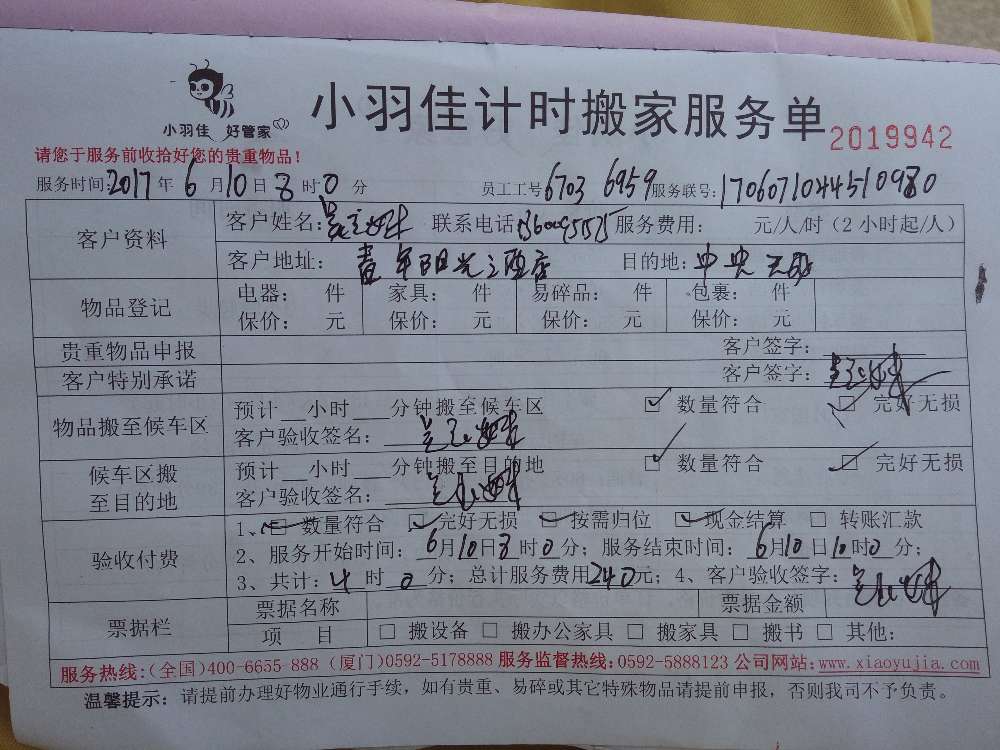 小羽佳 好管家
小羽佳计时搬家服务单
2019942
请您于服务前收拾好您的贵重物品！
服务时间:2017年6月10日8时0分 员工工号6703 6959 服务联号:1706071044510980
客户资料
客户姓名: 联系电话 服务费用: 元/人/时（2小时起/人）
客户地址: 青年阳光 目的地:中央
物品登记
电器: 件 家具: 件 易碎品: 件 包裹: 件
保价: 元 保价: 元 保价: 元 保价: 元
贵重物品申报 客户签字:
客户特别承诺 客户签字:
物品搬至候车区
预计__小时___分钟搬至候车区 ☑ 数量符合 ☑ 完好无损
客户验收签名:
候车区搬至目的地
预计__小时___分钟搬至目的地 ☑ 数量符合 ☑ 完好无损
客户验收签名:
验收付费
1、☑数量符合 ☑完好无损 ☑按需归位 ☑现金结算 □ 转账汇款
2、服务开始时间: 6月10日8时0分；服务结束时间: 6月10日10时0分；
3、共计: 4时0分；总计服务费用240元；4、客户验收签字:
票据栏
票据名称 票据金额
项 目 □ 搬设备 □ 搬办公家具 □ 搬家具 □ 搬书 □ 其他:
服务热线:(全国)400-6655-888 (厦门)0592-5178888 服务监督热线:0592-5888123 公司网站:www.xiaoyujia.com
温馨提示: 请提前办理好物业通行手续，如有贵重、易碎或其它特殊物品请提前申报，否则我司不予负责。